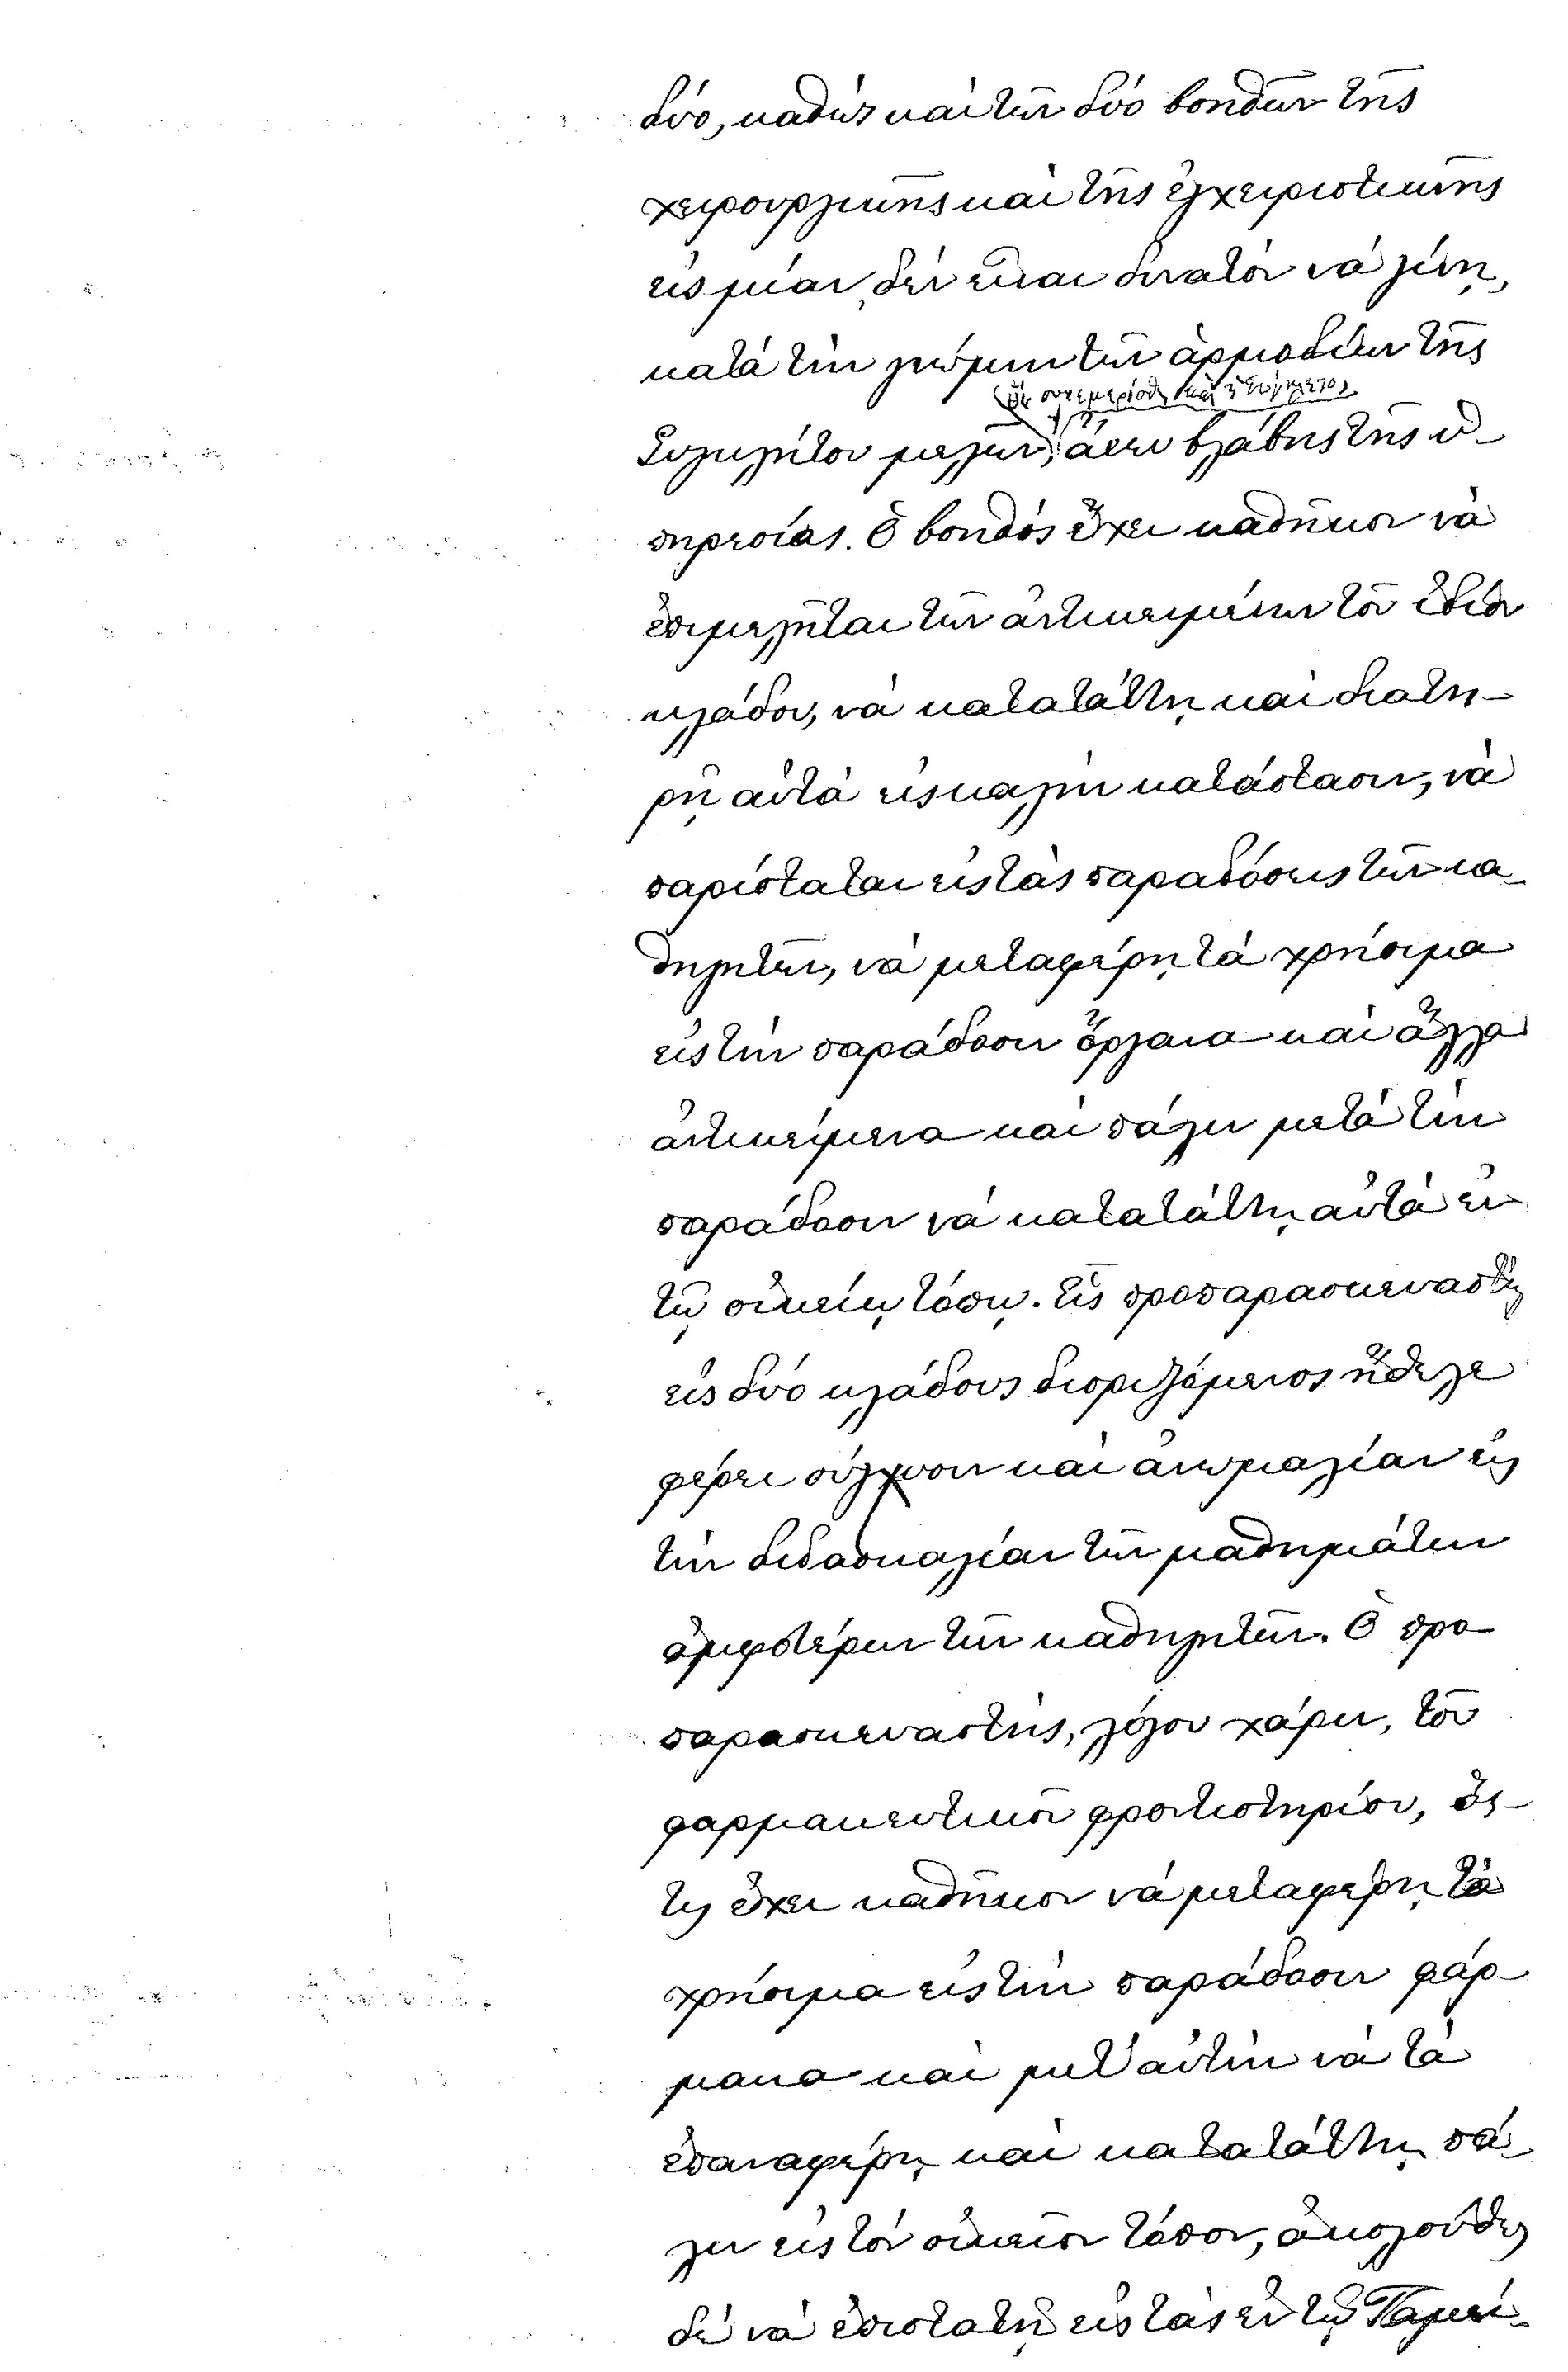 δύο, καθὼς καὶ τῶν δύο βοηθῶν τῆς
χειρουργικῆς καὶ τῆς ἐγχειριστικῆς
εἰς μίαν, δὲν εἶναι δυνατὸν νὰ γίνῃ,
κατὰ τὴν γνώμην τῶν ἁρμοδίων τῆς
συνεμερίσθη καὶ ἡ Σύγκλητος
Συγκλήτου μελῶν, ἄνευ βλάβης τῆς ὑ-
πηρεσίας. Ὁ βοηθὸς ἔχει καθῆκον νὰ
ἐπιμελῆται τῶν ἀντικειμένων τοῦ ἰδίου
κλάδου, νὰ κατατάττῃ καὶ διατη-
ρῇ αὐτὰ εἰς καλὴν κατάστασιν, νὰ
παρίσταται εἰς τὰς παραδόσεις τῶν κα-
θηγητῶν, νὰ μεταφέρῃ τὰ χρήσιμα
εἰς τὴν παράδοσιν ὄργανα καὶ ἄλλα
ἀντικείμενα καὶ πάλιν μετὰ τὴν
παράδοσιν νὰ κατατάττῃ αὐτὰ ἐν
τῷ οἰκείῳ τόπῳ. Εἷς προπαρασκευαστὴς
εἰς δύο κλάδους διοριζόμενος ἤθελε
φέρει σύγχυσιν καὶ ἀνωμαλίαν εἰς
τὴν διδασκαλίαν τῶν μαθημάτων
ἀμφοτέρων τῶν καθηγητῶν. Ὁ προ-
παρασκευαστὴς, λόγου χάριν, τοῦ
φαρμακευτικοῦ φροντιστηρίου, ὅς-
τις ἔχει καθῆκον νὰ μεταφέρῃ τὰ
χρήσιμα εἰς τὴν παράδοσιν φάρ-
μακα καὶ μετ' αὐτὴν νὰ τὰ
ἐπαναφέρῃ καὶ κατατάττῃ πά-
λιν εἰς τὸν οἰκεῖον τόπον, ἀκολούθως
δὲ νὰ ἐπιστατῇ εἰς τὰς ἐν τῷ Ταμεί-